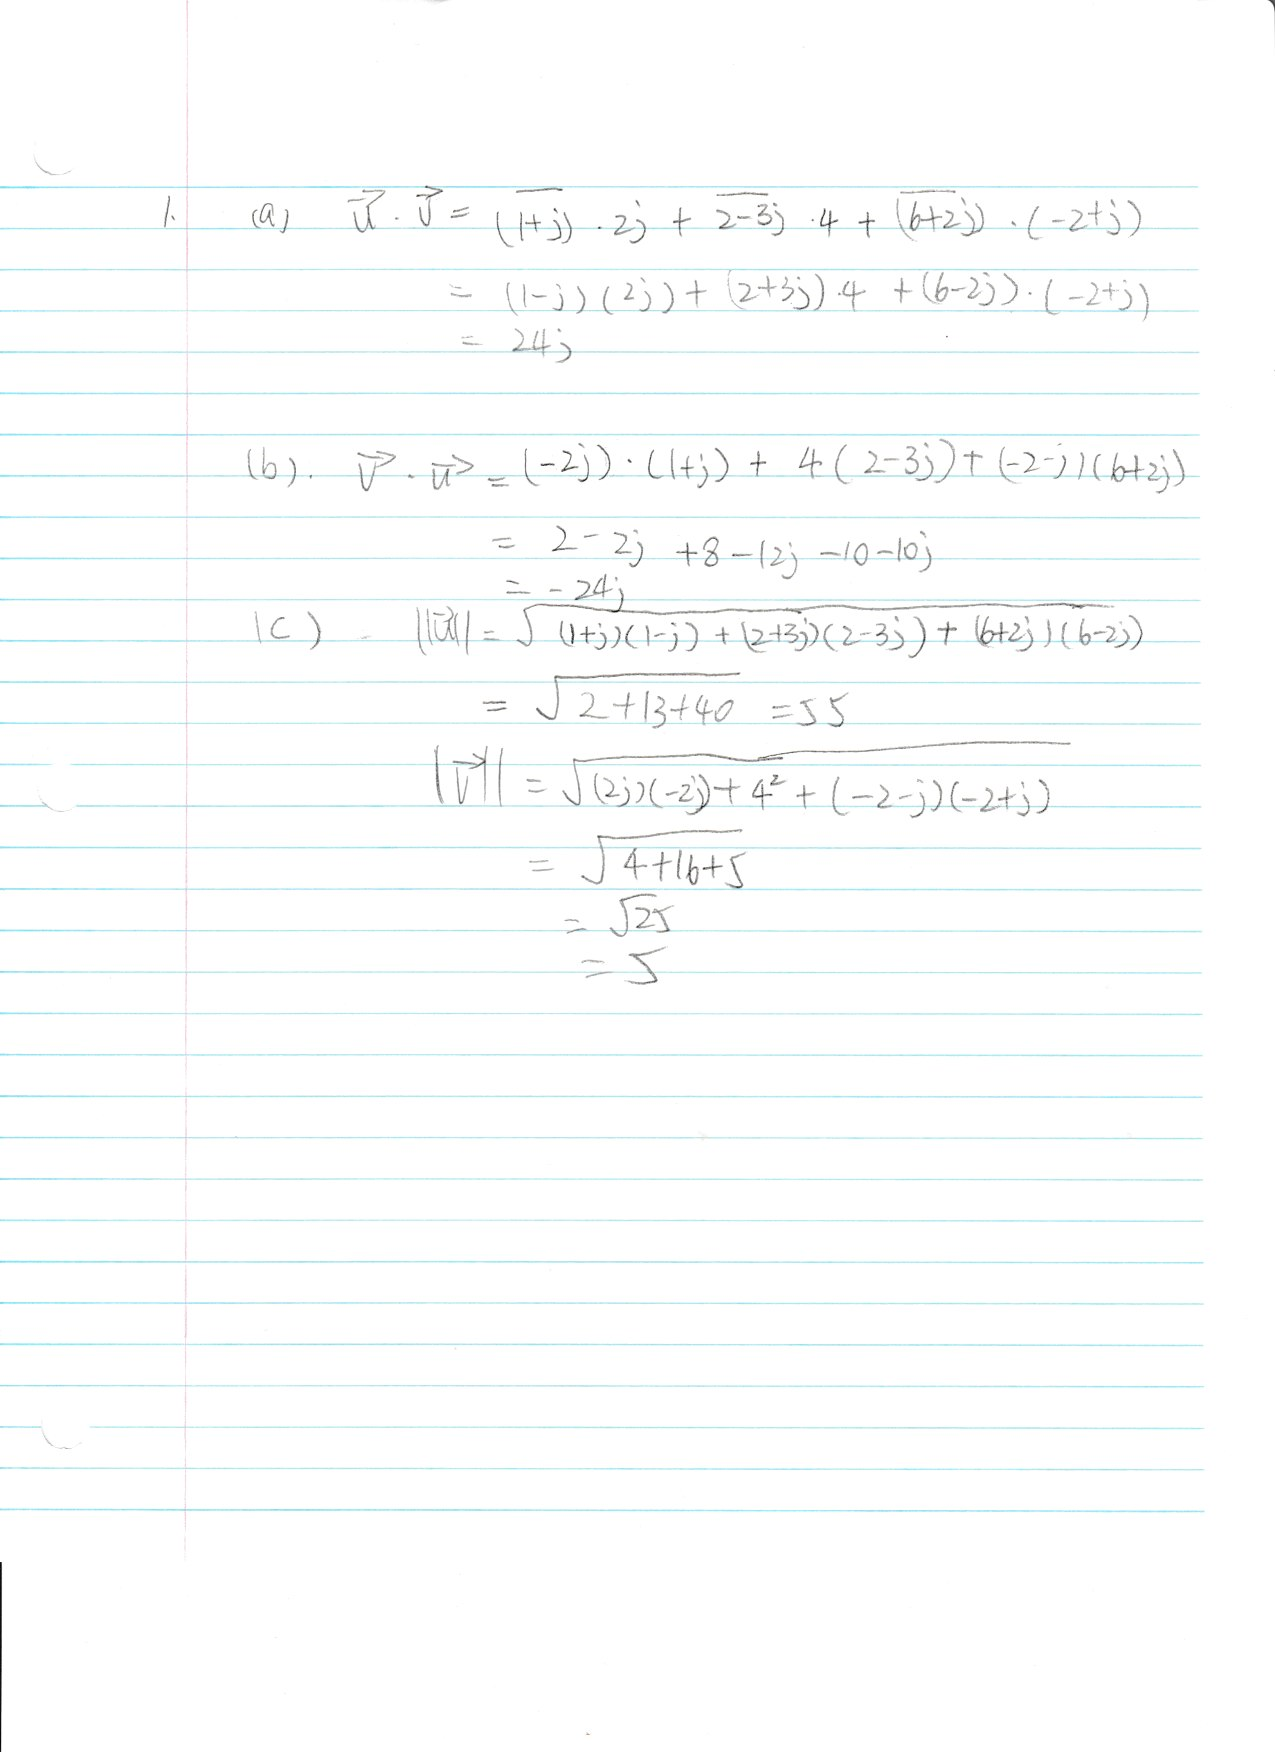 1. (a) \vec{u} \cdot \vec{v} = \overline{(1+j)} \cdot 2j + \overline{2-3j} \cdot 4 + \overline{(6+2j)} \cdot (-2+j)
= (1-j)(2j) + (2+3j) \cdot 4 + (6-2j) \cdot (-2+j)
= 24j
(b). \vec{v} \cdot \vec{u} = (-2j) \cdot (1+j) + 4(2-3j) + (-2-j)(6+2j)
= 2-2j +8-12j -10-10j
= -24j
(c) - ||\vec{u}|| = \sqrt{(1+j)(1-j) + (2+3j)(2-3j) + (6+2j)(6-2j)}
= \sqrt{2+13+40} = 55
||\vec{v}|| = \sqrt{(2j)(-2j) + 4^2 + (-2-j)(-2+j)}
= \sqrt{4+16+5}
= \sqrt{25}
= 5